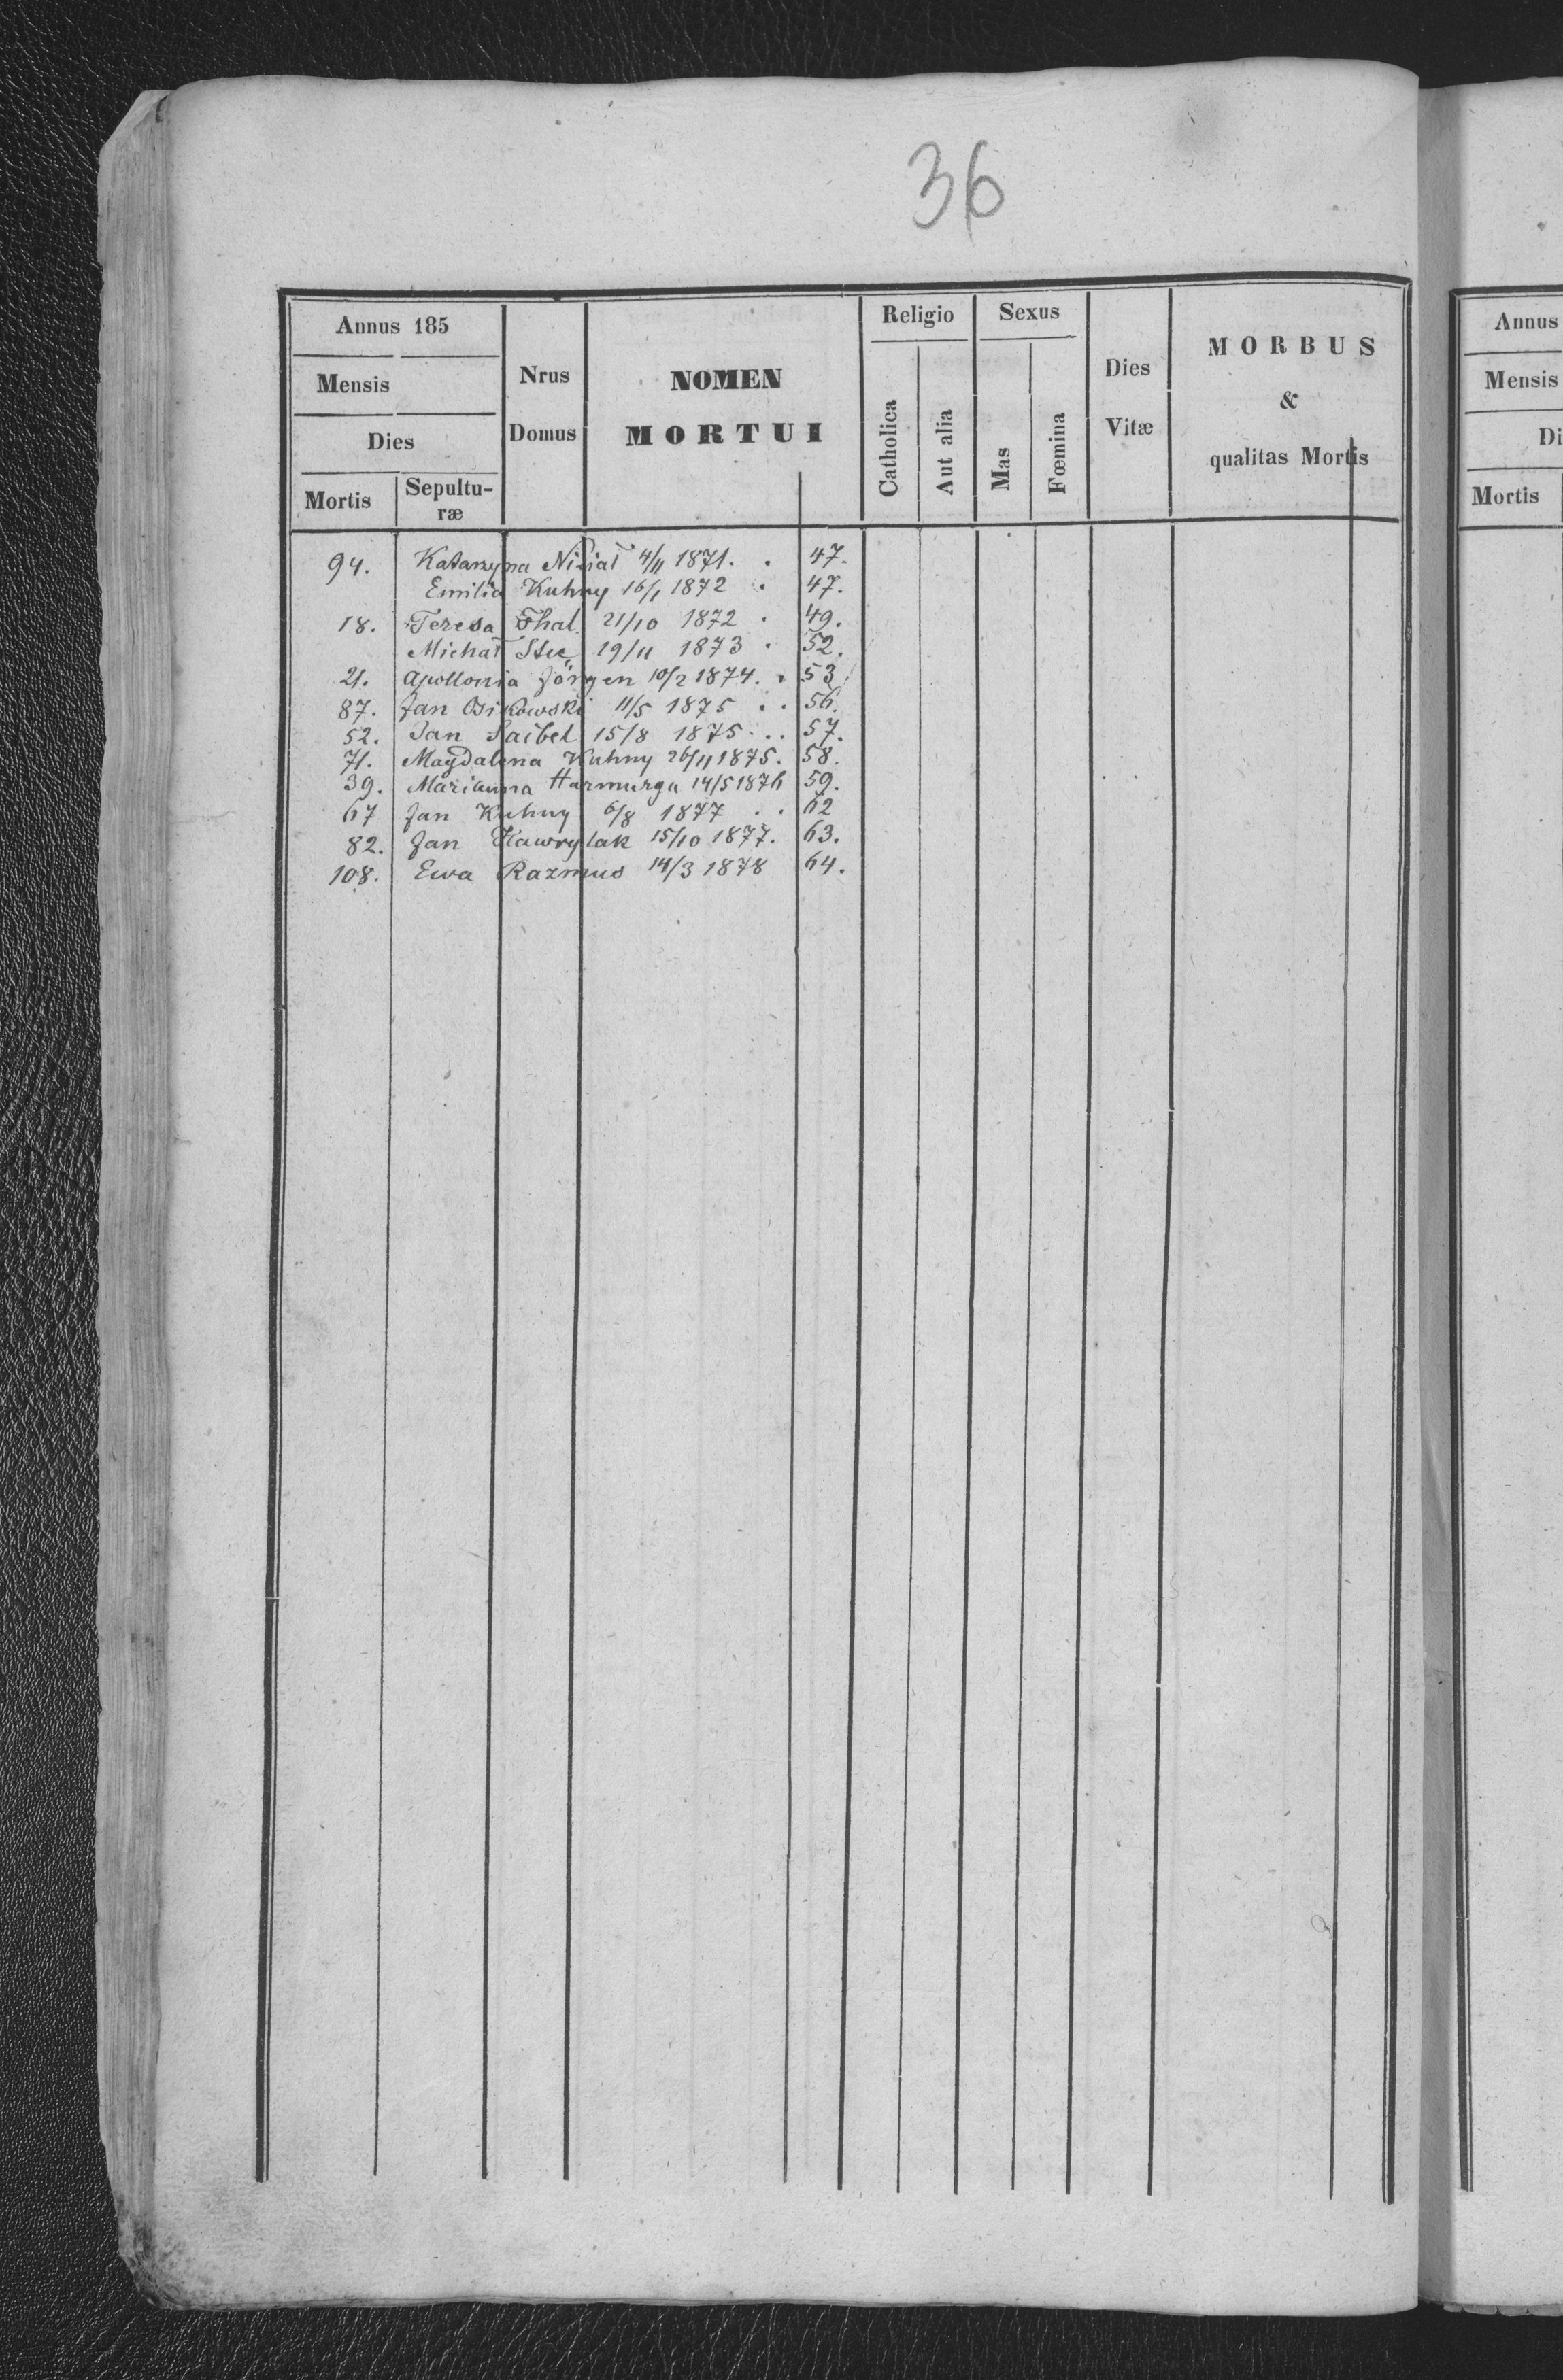 36
Annus 185
Mensis
Dies
Mortis
Sepultu-
ræ
Nrus
Domus
NOMEN
MORTUI
Religio
Catholica
Aut alia
Sexus
Mas
Fœmina
Dies
Vitæ
MORBUS
&
qualitas Mortis
94. Katarzyna 4/11 1871. . 47.
Emilia Kuhny 16/1 1872 . 47.
18. Teresa Thal 21/10 1872 . 49.
Michał Stec 19/11 1873 . 52.
21. Apollonia Jörgen 10/2 1874. . 53
87. Jan Osikowski 11/5 1875 . . 56.
52. Jan Saibel 15/8 1875 . . 57.
71. Magdalena Kuhny 26/11 1875. 58.
39. Marianna 14/5 1876 59.
67 Jan Kuhny 6/8 1877 . . 62
82. Jan Hawrylak 15/10 1877. 63.
108. Ewa Razmus 14/3 1878 64.
Annus
Mensis
Di
Mortis